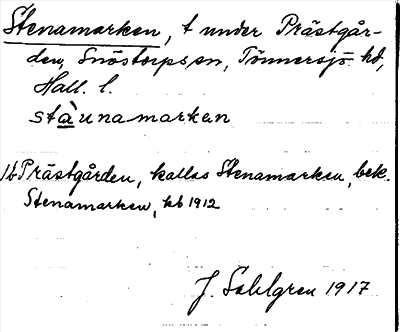 Stenamarken, t under Prästgår-
den, Snöstorps sn, Tönnersjö hd,
Hall. l.
stàunamarken
1b Prästgården, kallas Stenamarken, bek.
Stenamarken, kb 1912
J. Sahlgren 1917